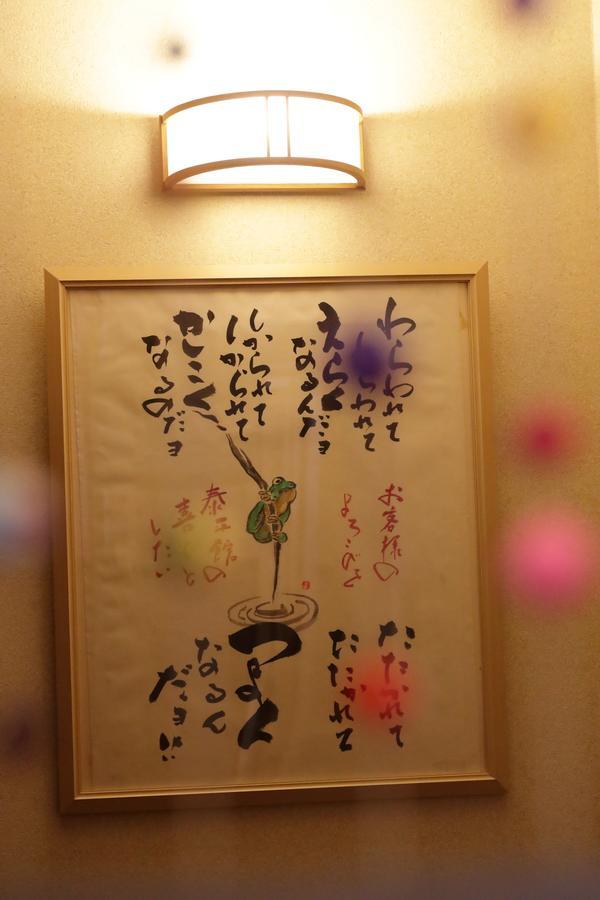 わらわれて
わらわれて
えらく
なるんだヨ
しかられて
しかられて
かしこく
なるのだヨ
お客様の
よろこびを
泰正館の
喜びと
したい
たたかれて
たたかれて
つよく
なるん
だヨ!!